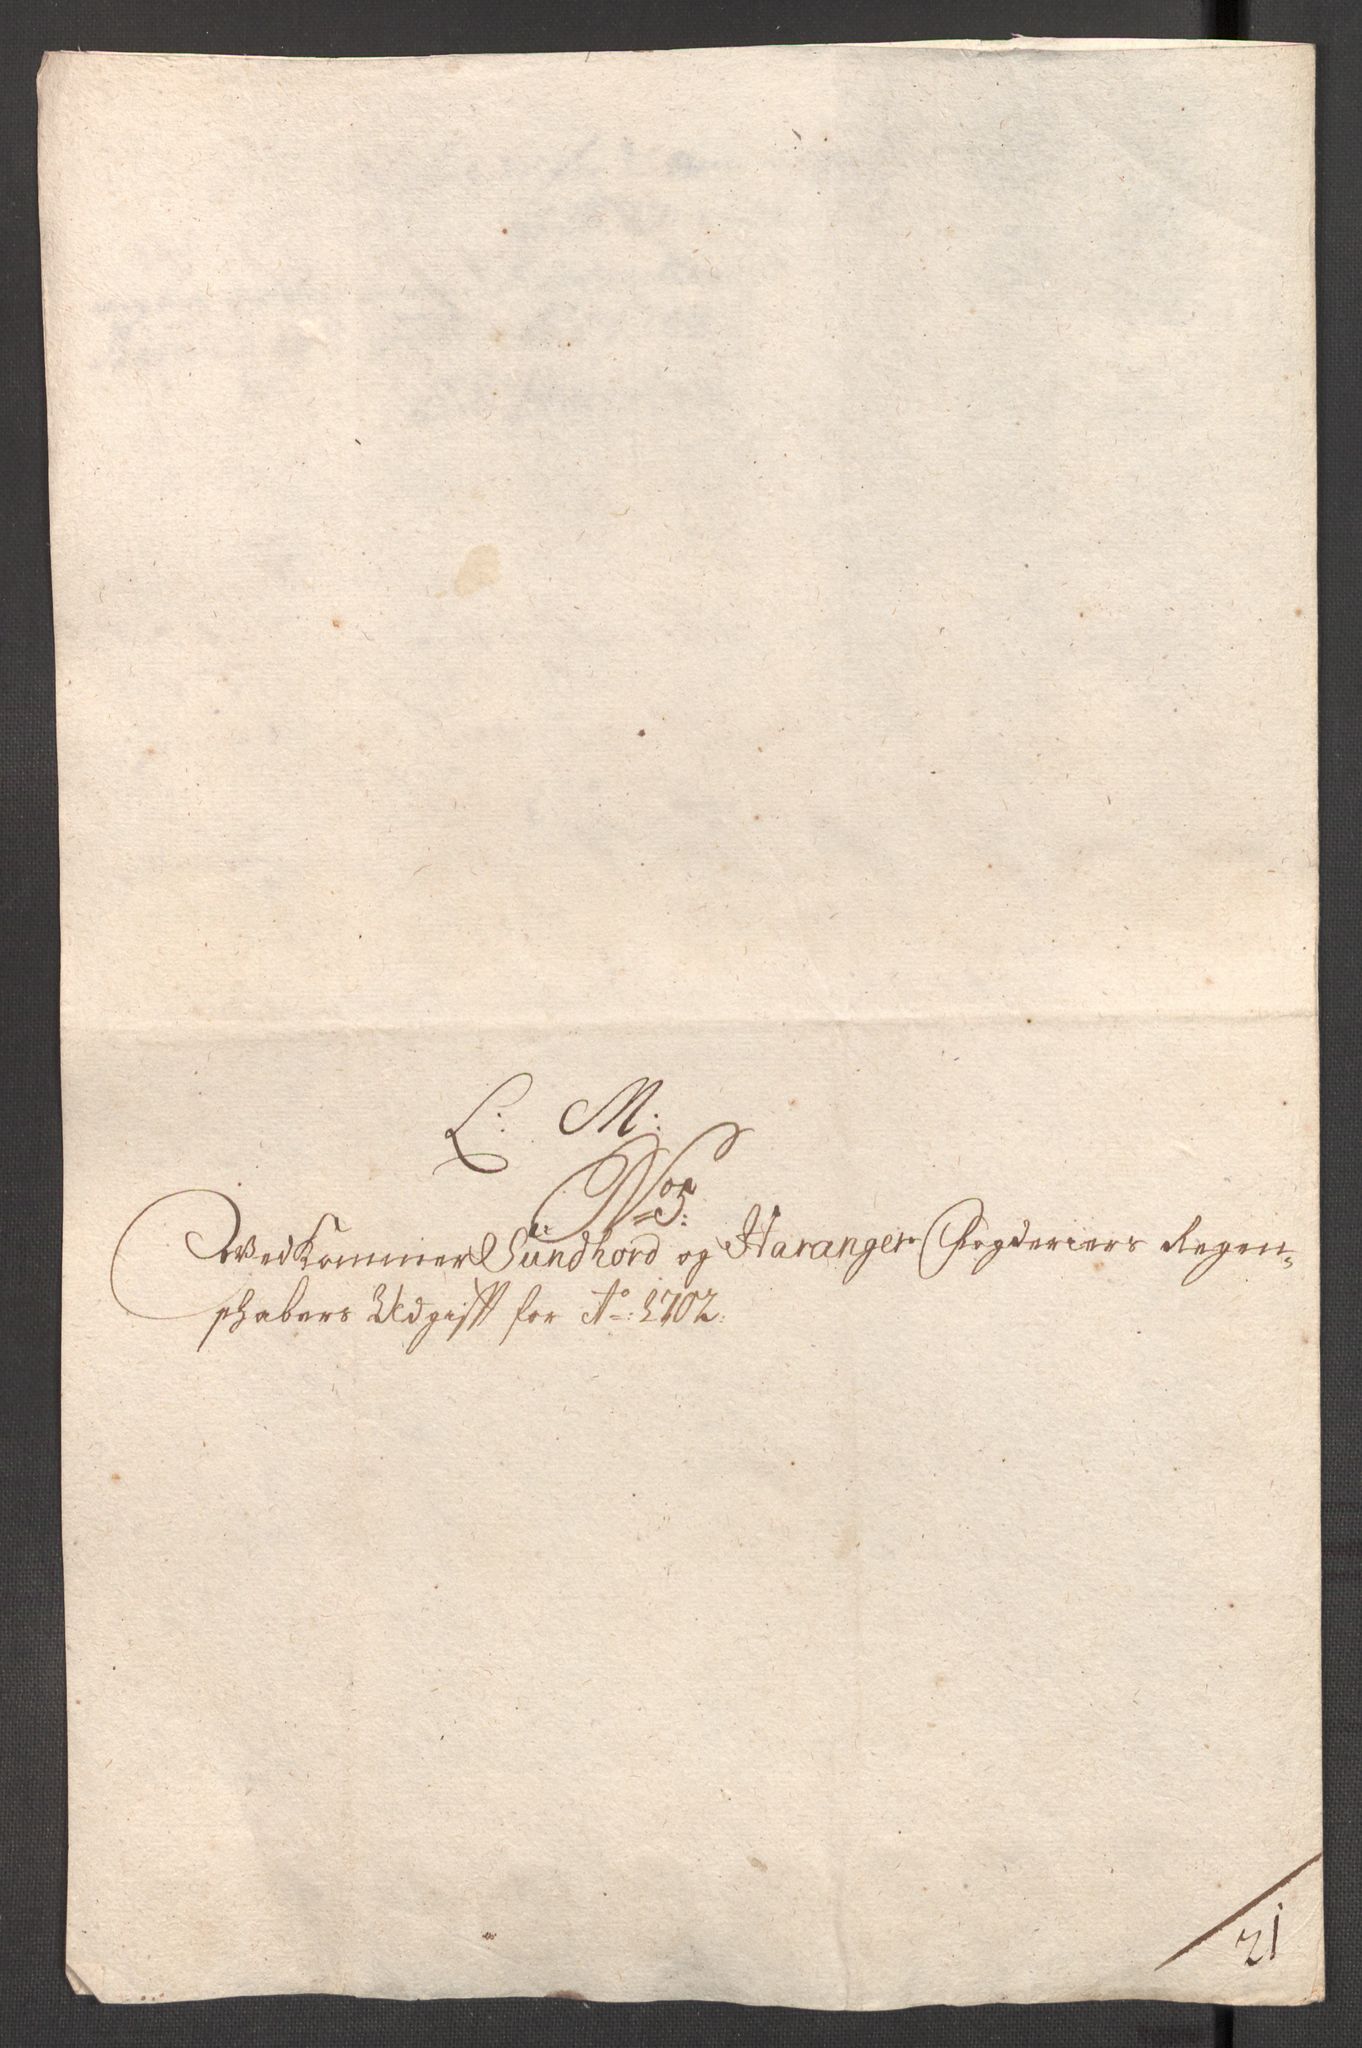 L: M:
No 5:
Vedkommer Sundhord og Haranger Fogderiers Regen-
schabers Udgifft for Ao: 1702.
21